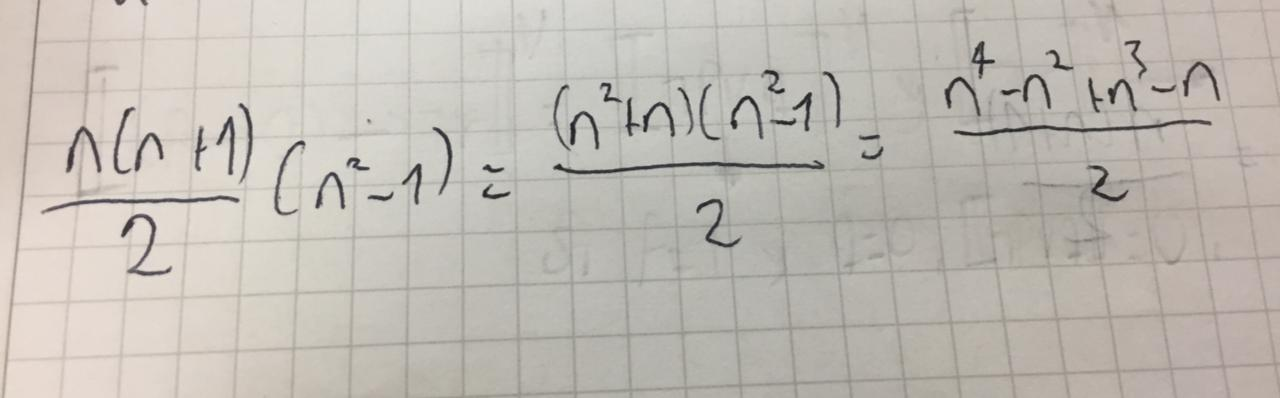 n(n+1)/2 (n²-1) = (n²+n)(n²-1)/2 = n⁴-n²+n³-n/2